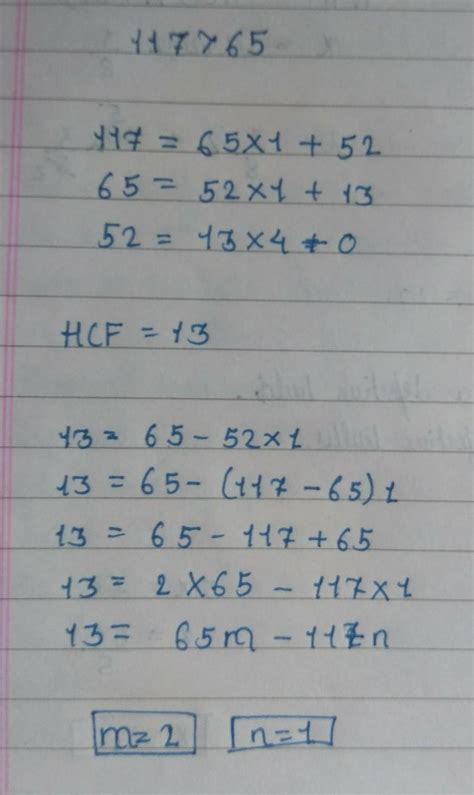 117 > 65
117 = 65×1 + 52
65 = 52×1 + 13
52 = 13×4 + 0
HCF = 13
13 = 65 - 52×1
13 = 65 - (117 - 65) 1
13 = 65 - 117 + 65
13 = 2×65 - 117×1
13 = 65m - 117n
m=2 n=1